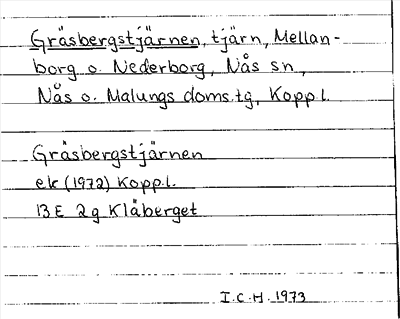 Gräsbergstjärnen, tjärn, Mellan-
borg o. Nederborg, Nås sn,
Nås o. Malungs doms.tg, Kopp.l.
Gråsbergstjärnen
ek (1972) Kopp.l.
13 E 2 g Klåberget
I.C.H. 1973